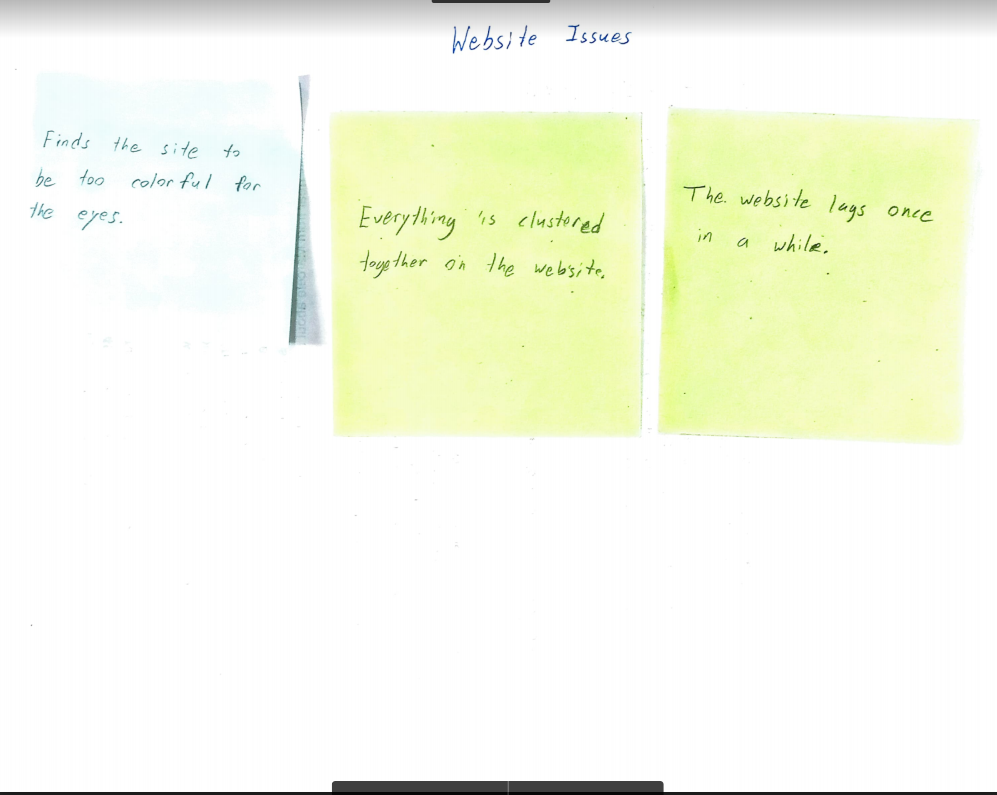 Website Issues
Finds the site to
be too colorful for
the eyes.
Everything is clustered
together on the website.
The website lags once
in a while.